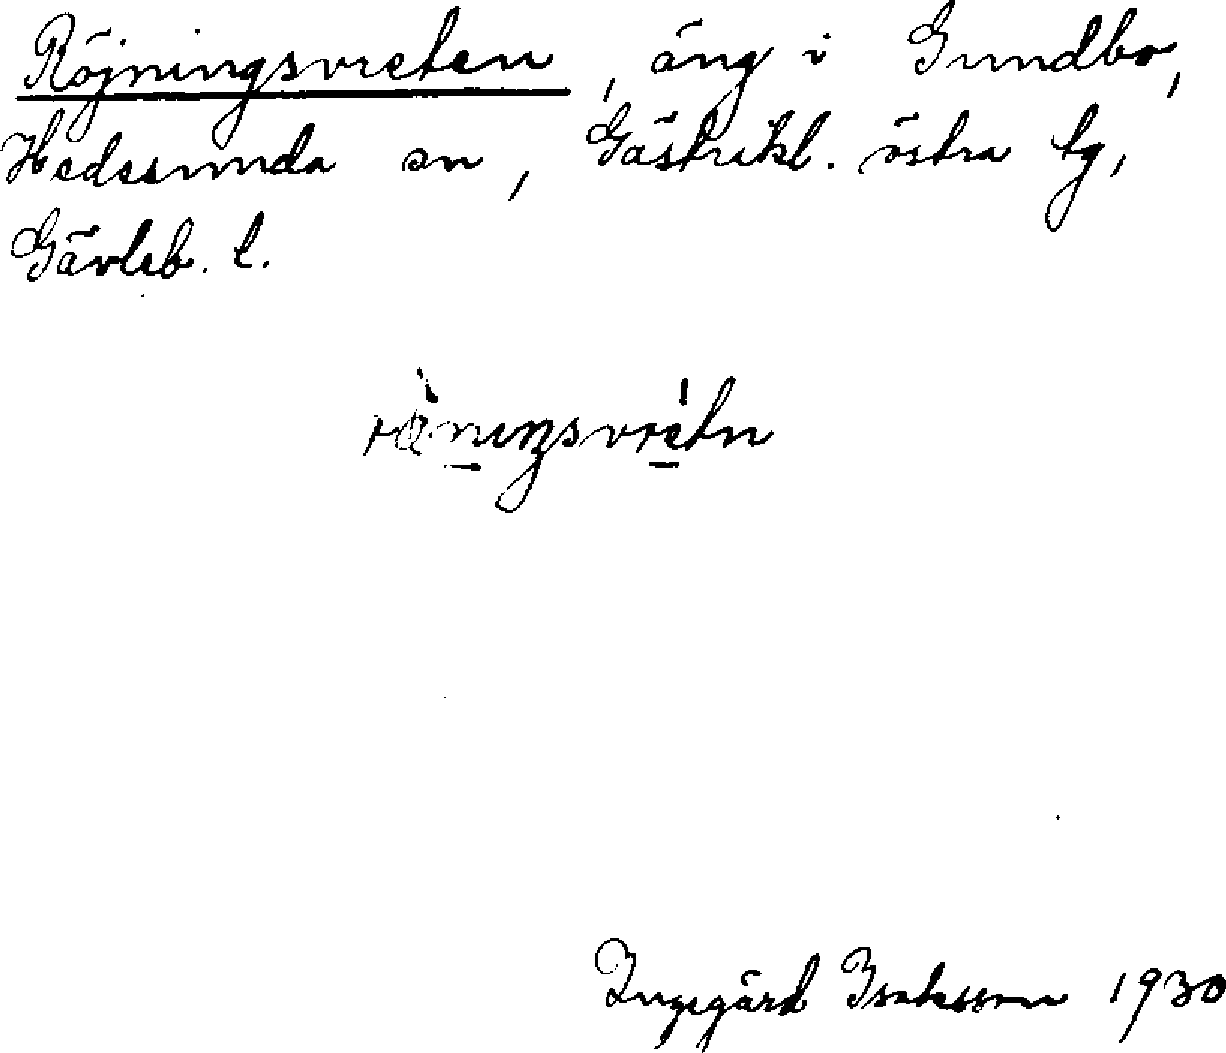 Röjningsvreten, äng i Gundbo,
Hedesunda sn, Gästrikl. östra tg,
Gävleb. l.
Ingegärd Isaksson 1930